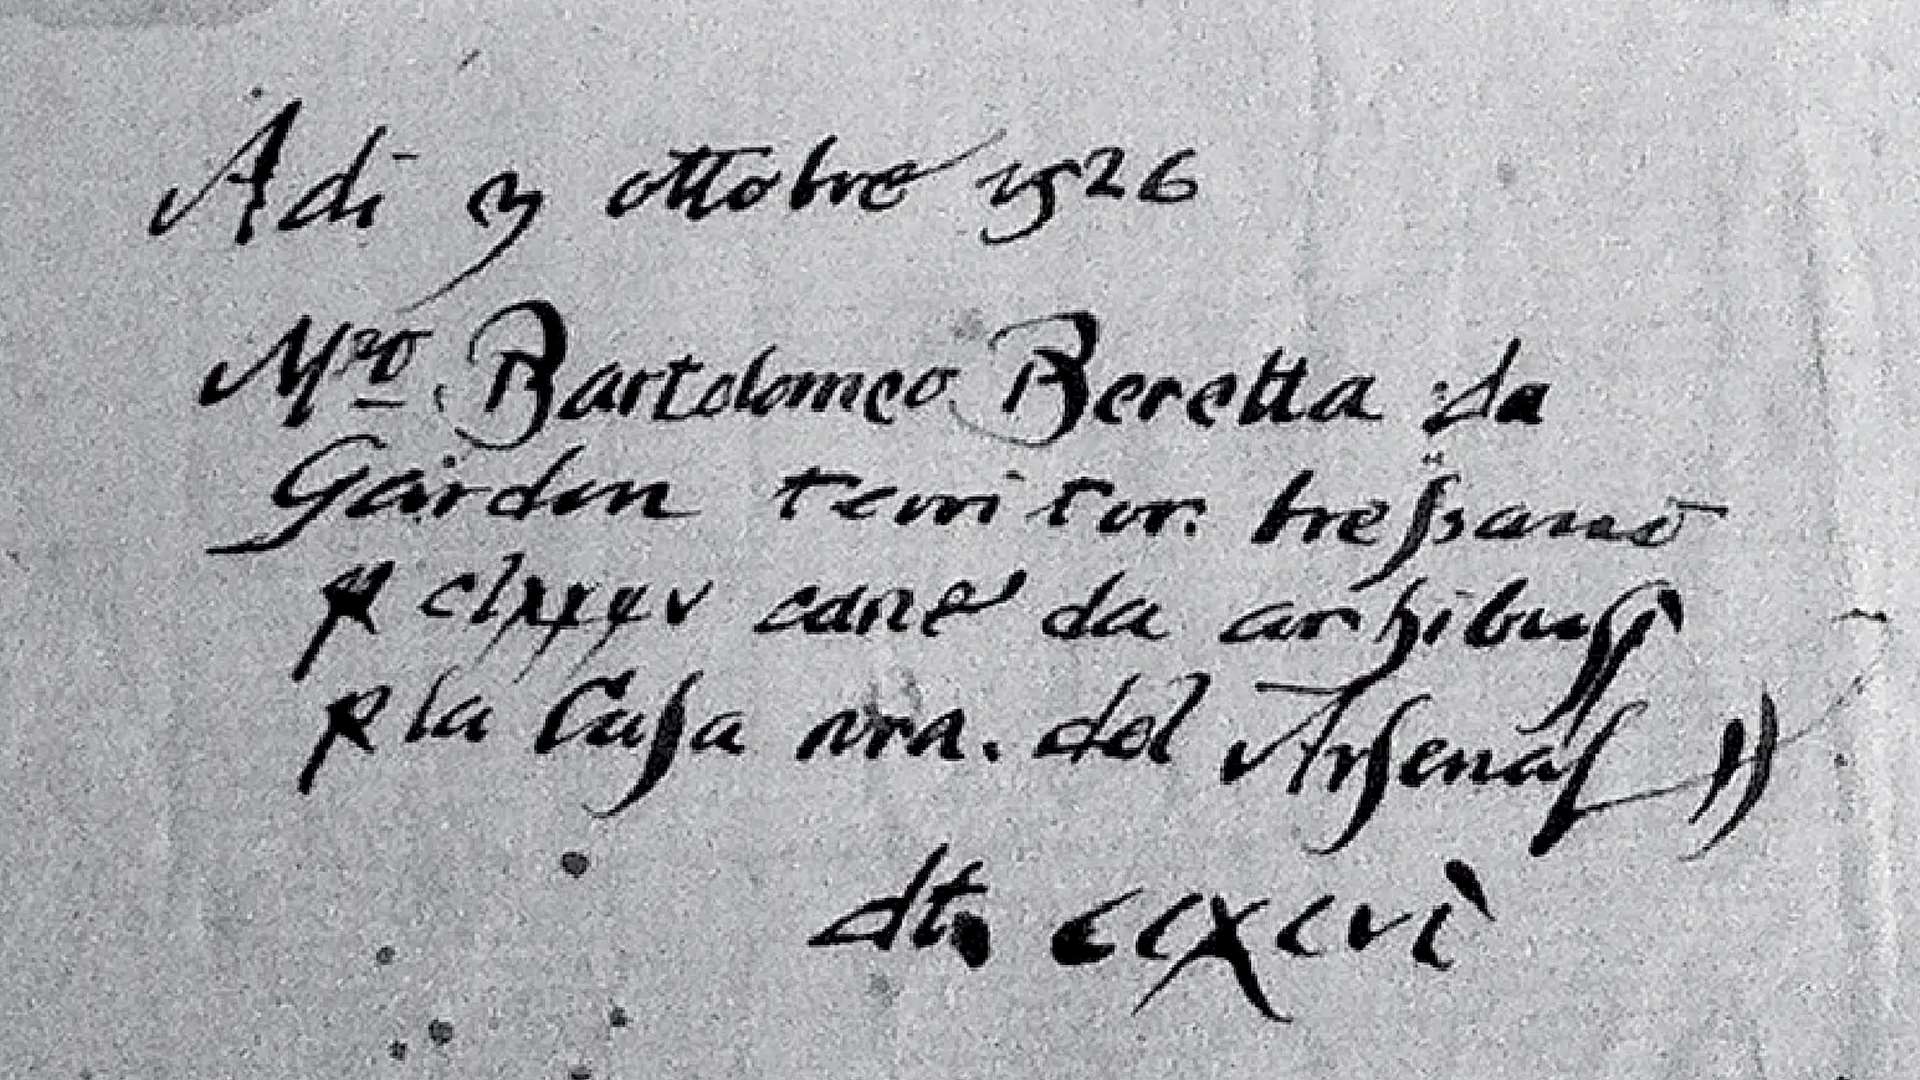 Adi 3 ottobre 1526
Mro Bartolomeo Beretta da
Gardon territor. bressano
p clxxxv cane da arhibussi
p la Casa nra. del Arsenal //
dti ccxcvi